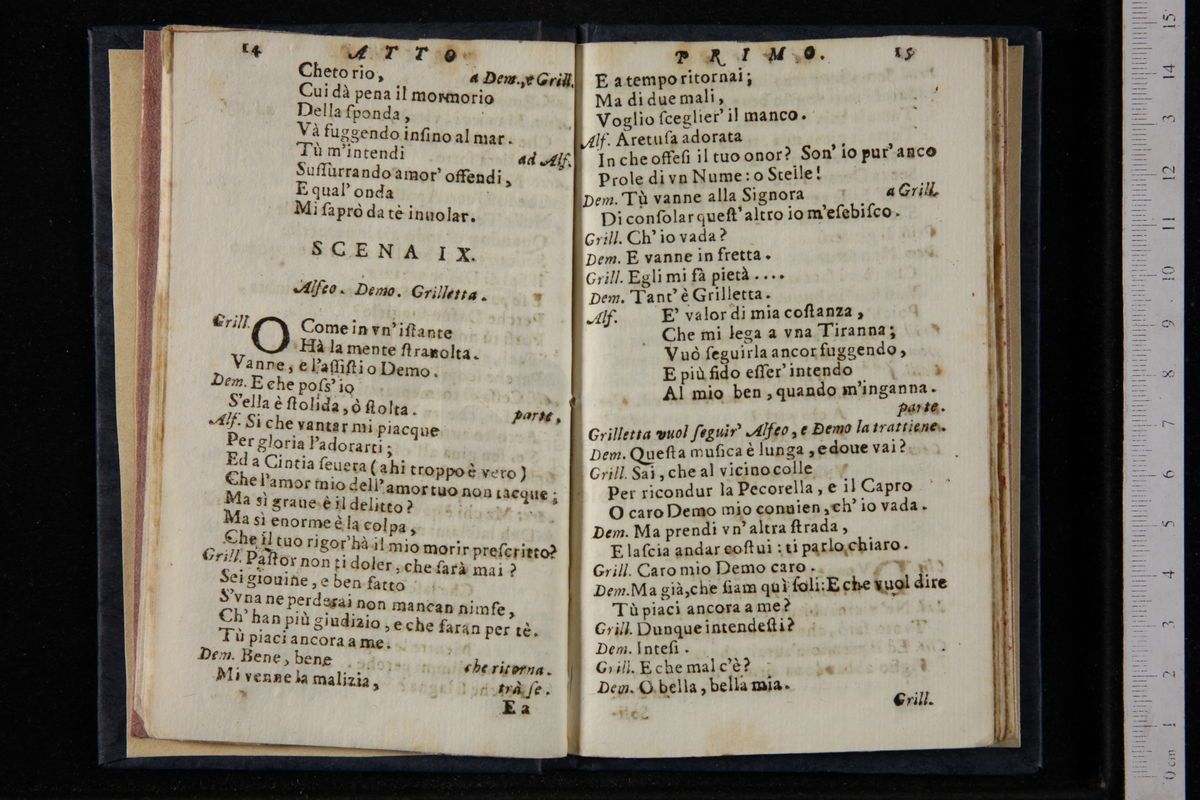 14 ATTO
Cheto rio, a Dem., e Grill.
Cui dà pena il mormorio
Della ſponda,
Và fuggendo inſino al mar.
Tù m'intendi ad Alf.
Suſſurrando amor' offendi,
E qual' onda
Mi ſaprò da tè inuolar.
SCENA IX.
Alfeo. Demo. Grilletta.
Grill. O Come in vn' iſtante
Hà la mente ſtrauolta.
Vanne, e l'aſſiſti o Demo.
Dem. E che poſſ' io
S'ella è ſtolida, ò ſtolta. parte,
Alf. Si che vantar mi piacque
Per gloria l'adorarti;
Ed a Cintia ſeuera (ahi troppo è vero)
Che l'amor mio dell' amor tuo non tacque;
Ma sì graue è il delitto?
Ma sì enorme è la colpa,
Che il tuo rigor' hà il mio morir preſcritto?
Grill. Paſtor non ti doler, che ſarà mai?
Sei giouine, e ben fatto
S'vna ne perderai non mancan nimfe,
Ch' han più giudizio, e che faran per tè.
Tù piaci ancora a me.
Dem. Bene, bene che ritorna.
Mi venne la malizia, trà ſe.
E a
PRIMO. 15
E a tempo ritornai;
Ma di due mali,
Voglio ſceglier' il manco.
Alf. Aretuſa adorata
In che offeſi il tuo onor? Son' io pur' anco
Prole di vn Nume: o Stelle!
Dem. Tù vanne alla Signora a Grill.
Di conſolar queſt' altro io m'eſebiſco.
Grill. Ch' io vada?
Dem. E vanne in fretta.
Grill. Egli mi fà pietà....
Dem. Tant' è Grilletta.
Alf. E' valor di mia coſtanza,
Che mi lega a vna Tiranna;
Vuò ſeguirla ancor fuggendo,
E più fido eſſer' intendo
Al mio ben, quando m'inganna.
parte.
Grilletta vuol ſeguir' Alfeo, e Demo la trattiene.
Dem. Queſta muſica è lunga, e doue vai?
Grill. Sai, che al vicino colle
Per ricondur la Pecorella, e il Capro
O caro Demo mio conuien, ch' io vada.
Dem. Ma prendi vn' altra ſtrada,
E laſcia andar coſtui: ti parlo chiaro.
Grill. Caro mio Demo caro.
Dem. Ma già, che ſiam quì ſoli: E che vuol dire
Tù piaci ancora a me?
Grill. Dunque intendeſti?
Dem. Inteſi.
Grill. E che mal c'è?
Dem. O bella, bella mia.
Grill.
0 cm 1 2 3 4 5 6 7 8 9 10 11 12 3 14 15